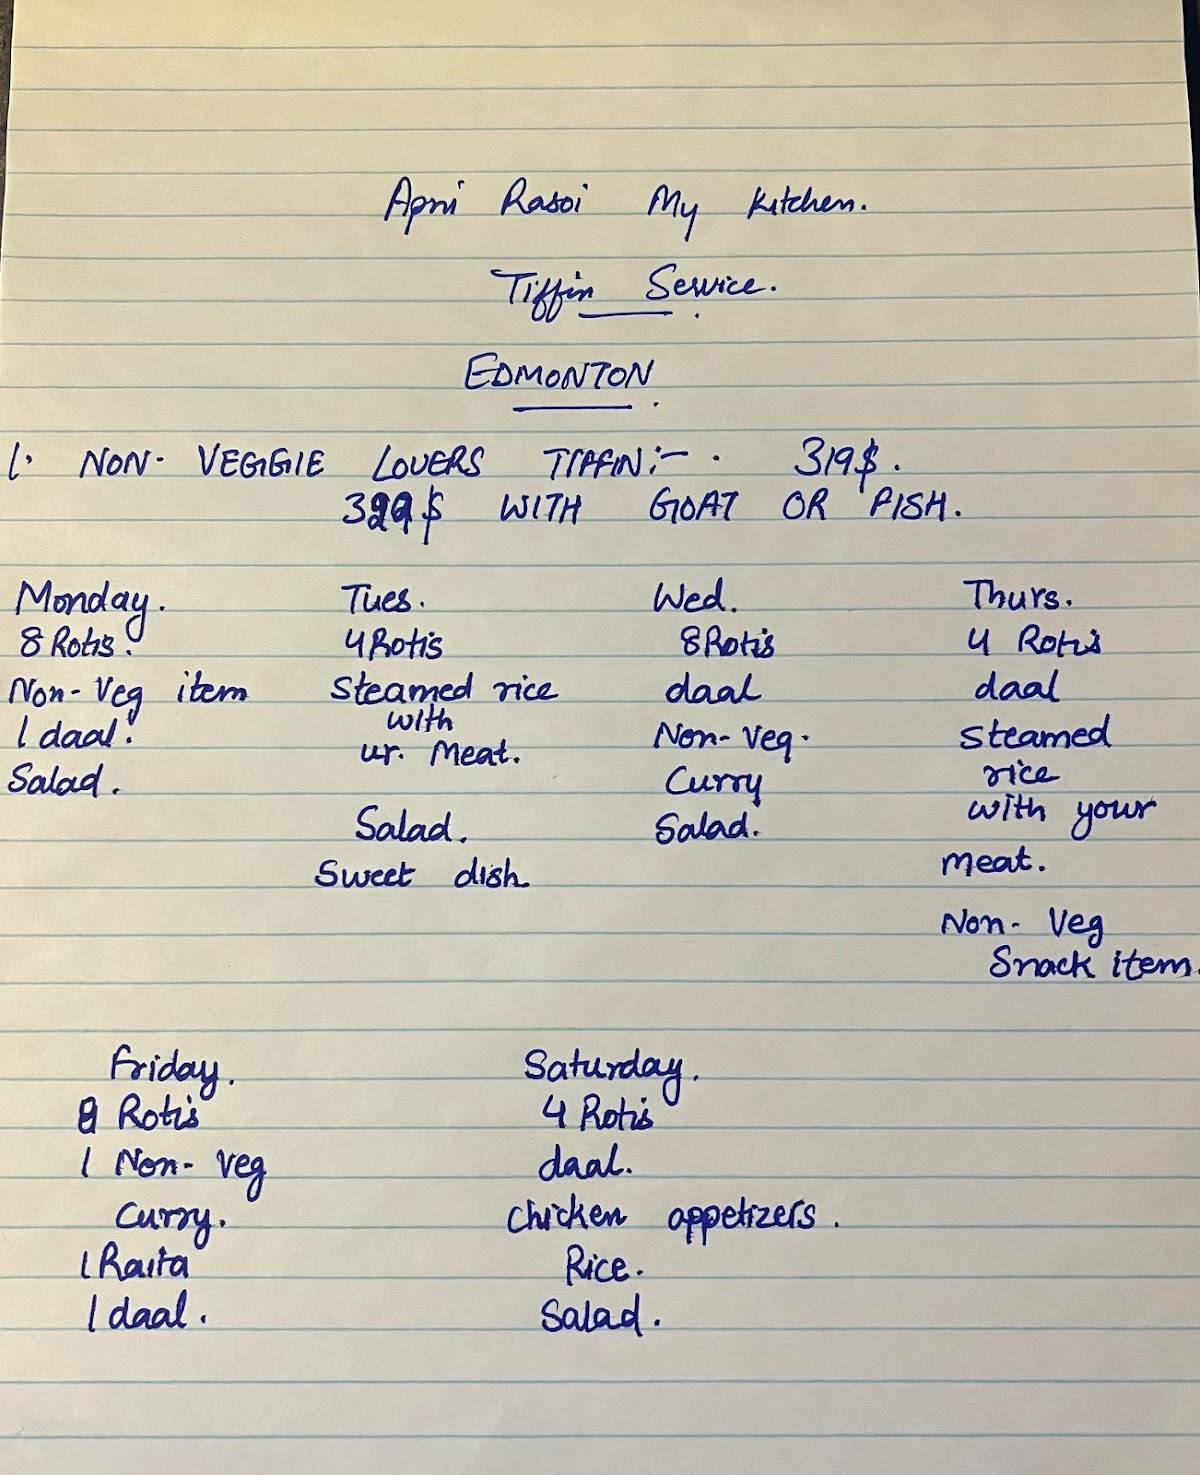 Apni Rasoi My Kitchen.
Tiffin Service.
EDMONTON.
1. NON-VEGGIE LOVERS TIFFIN:-. 319$.
399$ WITH GOAT OR FISH.
Monday.
8 Rotis.
Non-Veg item
1 daal.
Salad.
Tues.
4 Rotis
Steamed rice
with
ur. Meat.
Salad.
Sweet dish.
Wed.
8 Rotis
daal
Non-Veg.
Curry
Salad.
Thurs.
4 Rotis
daal
Steamed
rice
with your
meat.
Non-Veg
Snack item.
Friday.
8 Rotis
1 Non-Veg
Curry.
1 Raita
1 daal.
Saturday.
4 Rotis
daal.
Chicken appetizers.
Rice.
Salad.